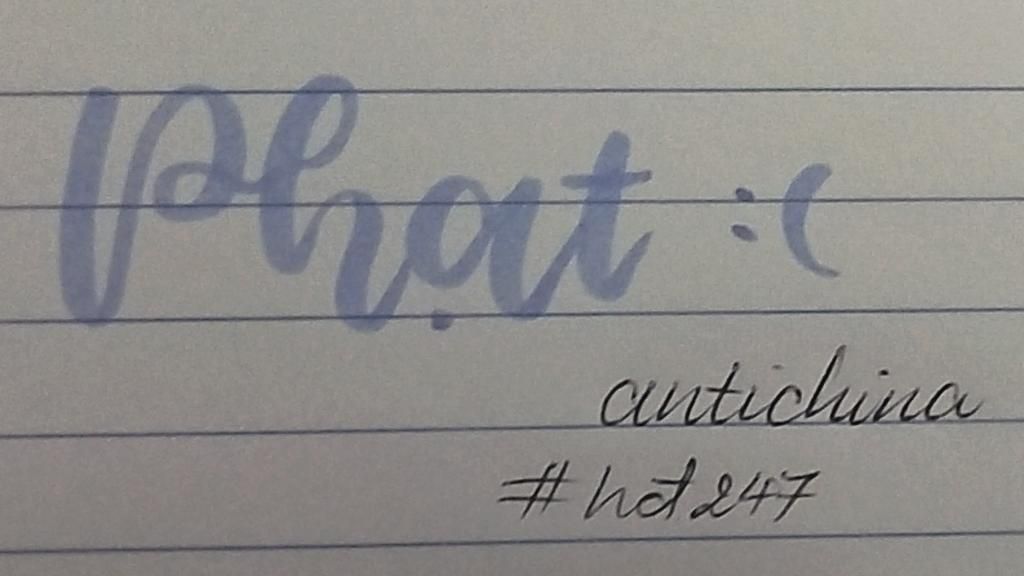 Phạt :(
antichina
#hot247